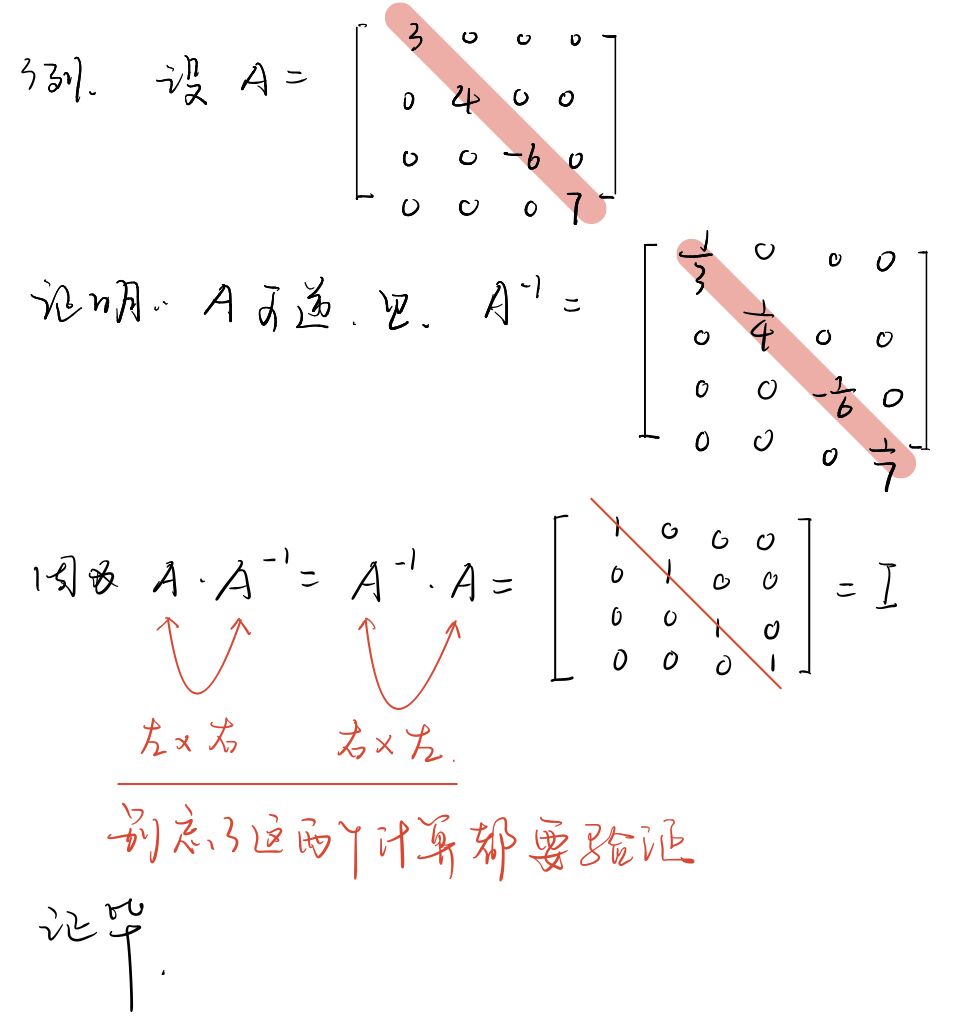 例. 设 A = [ 3 0 0 0
0 4 0 0
0 0 -6 0
0 0 0 7 ]
证明: A 可逆. 且. A⁻¹ = [ 1/3 0 0 0
0 1/4 0 0
0 0 -1/6 0
0 0 0 1/7 ]
因为 A · A⁻¹ = A⁻¹ · A = [ 1 0 0 0
0 1 0 0
0 0 1 0
0 0 0 1 ] = I
左×右 右×左.
别忘了这两个计算都要验证
证毕.